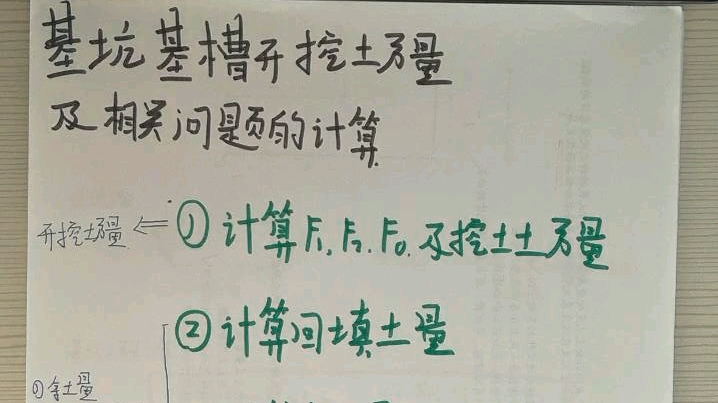 基坑基槽开挖土方量
及相关问题的计算
开挖土方量 ⇐ ① 计算F₁,F₂,F₀,及挖土土方量
② 计算回填土量
①余土量